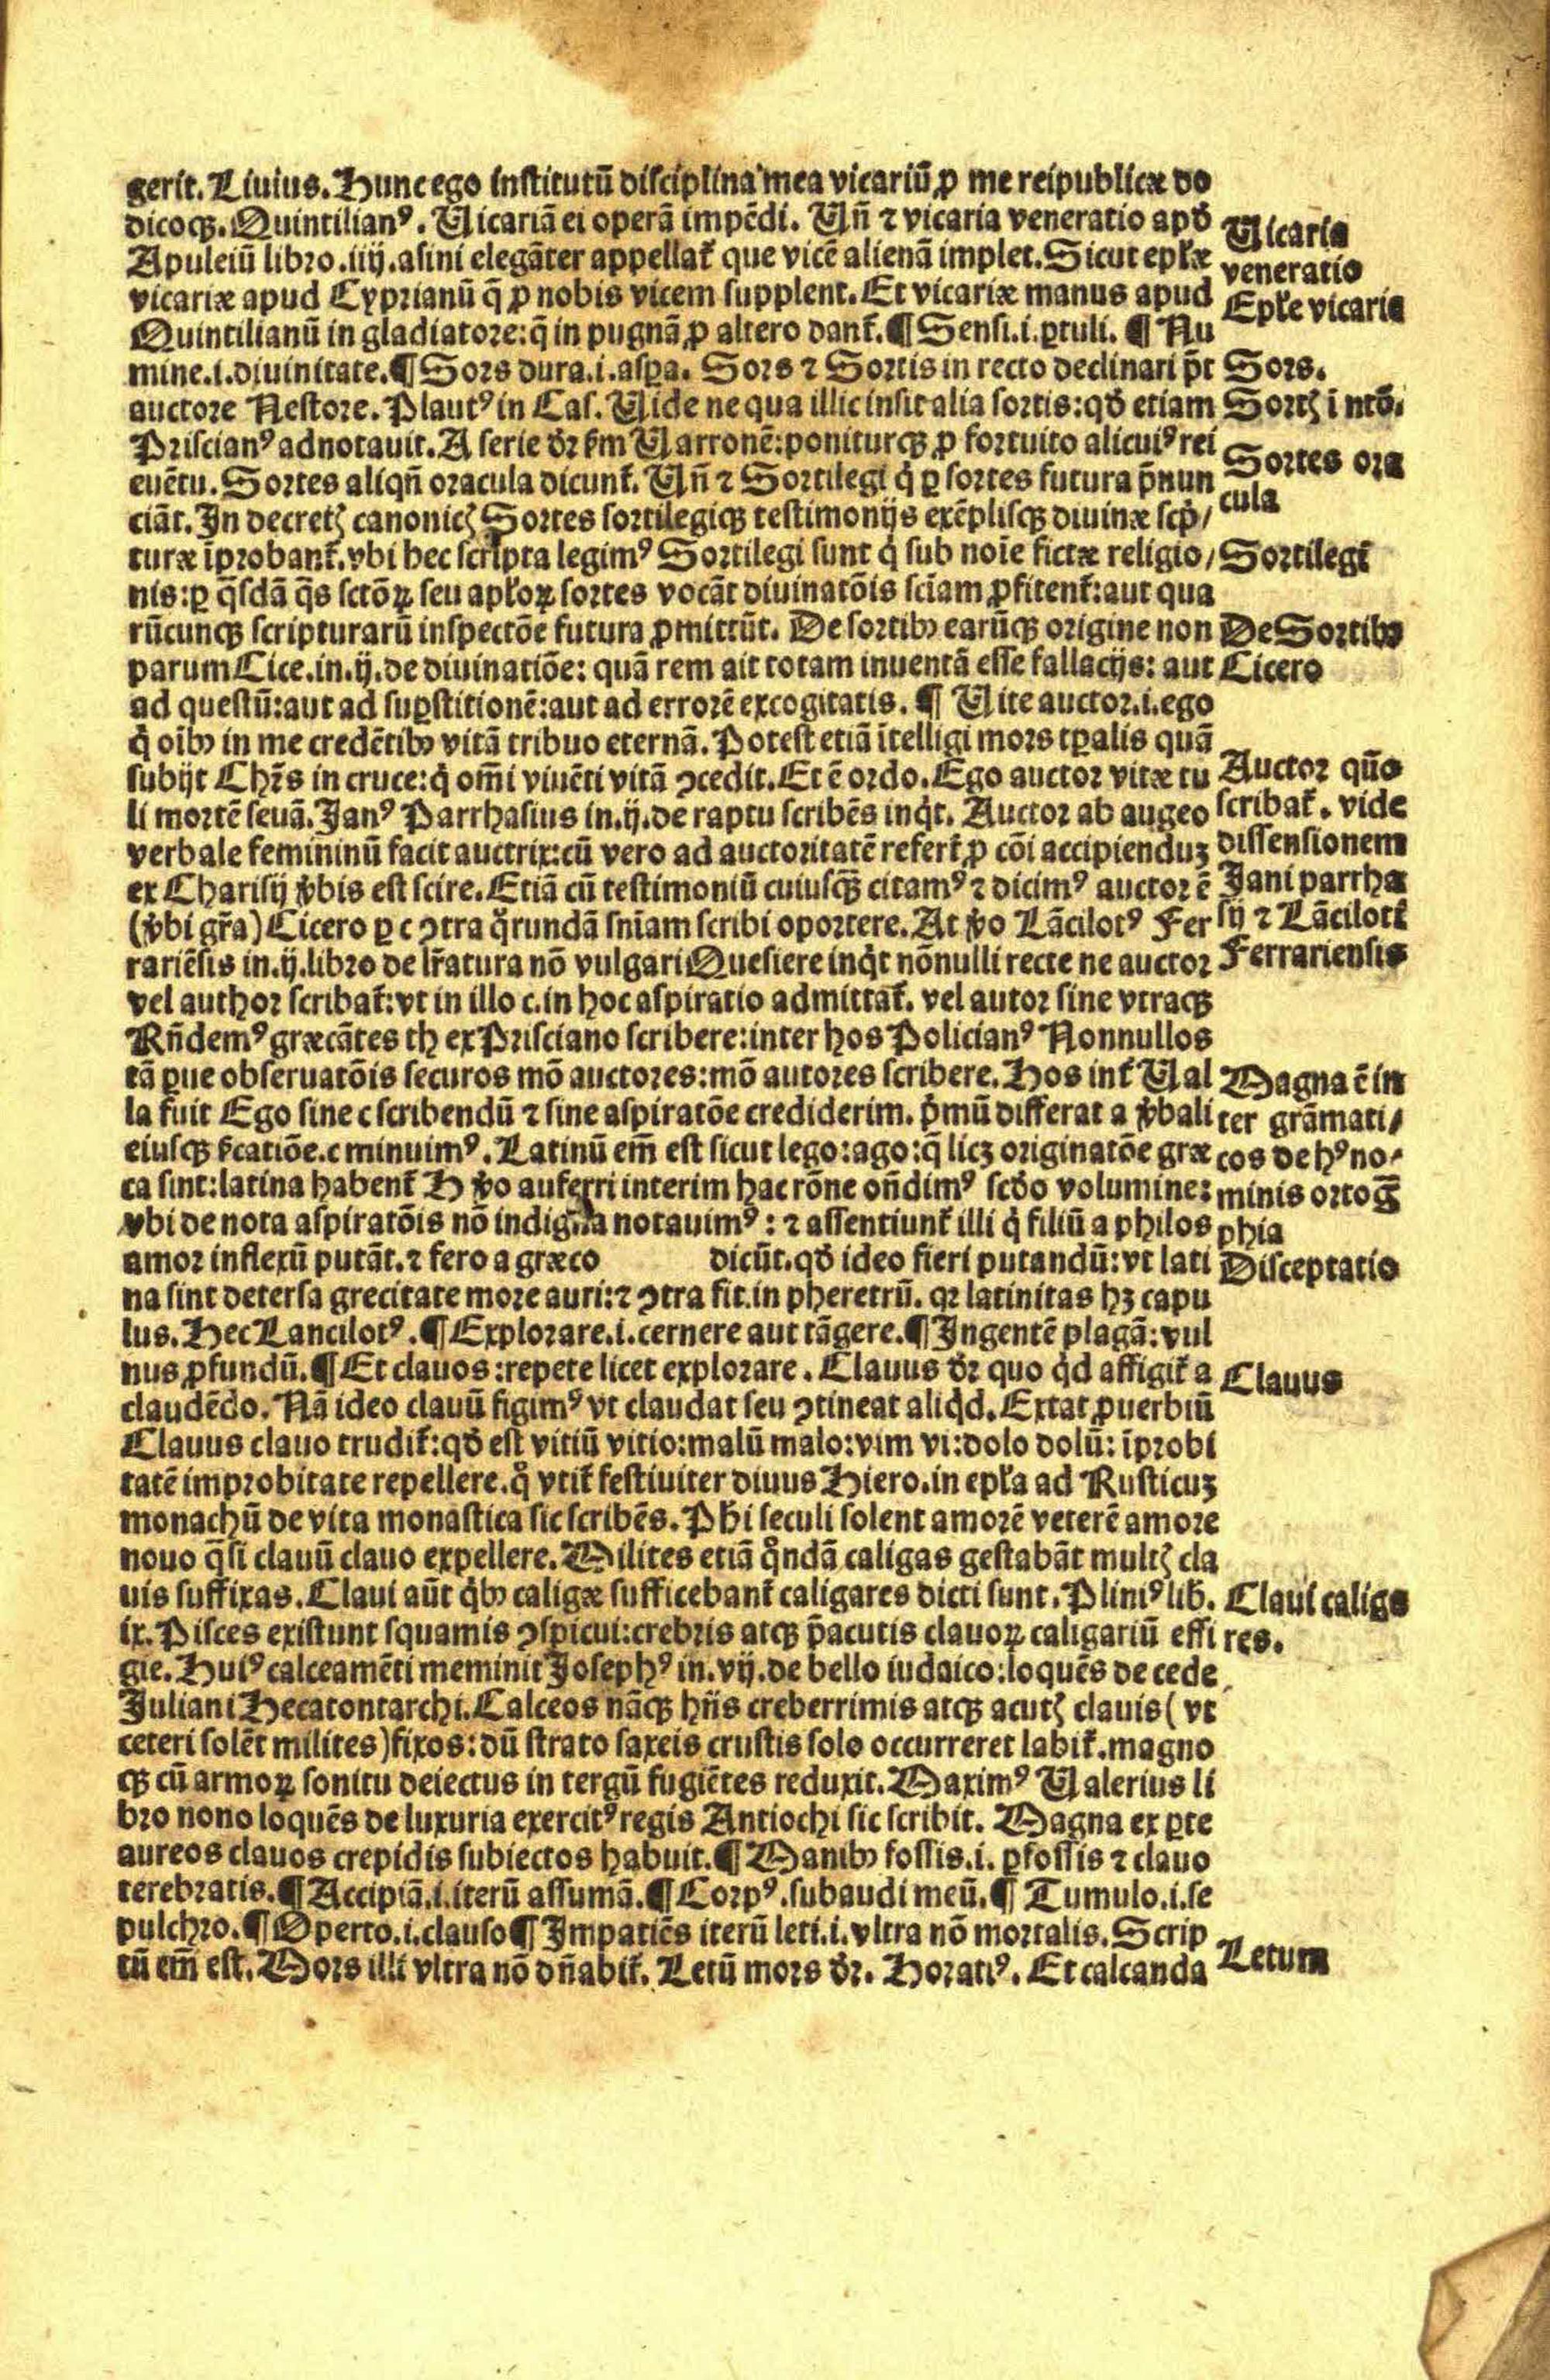 gerit. Liuius. Hunc ego institutū disciplina mea vicariū ꝓ me reipublicæ do
dicoqꝫ. Quintilianꝰ. Uicariā ei operā impēdi. Uñ ⁊ vicaria veneratio apđ
Apuleiū libro .iiij. asini elegāter appellat̄ que vicē alienā implet. Sicut epl̄æ
vicariæ apud Cyprianū q̄ ꝓ nobis vicem supplent. Et vicariæ manus apud
Quintilianū in gladiatore: q̄ in pugnā ꝓ altero dant̄. ¶ Sensi .i. ꝑtuli. ¶ Nu
mine .i. diuinitate. ¶ Sors dura .i. aspa. Sors ⁊ Sortis in recto declinari p̄t
auctore Nestore. Plautꝰ in Cas. Uide ne qua illic insit alia sortis: qđ etiam
Priscianꝰ adnotauit. A serie dr̄ fm Uarronē: poniturqꝫ ꝓ fortuito alicuiꝰ rei
euētu. Sortes aliqñ oracula dicunt̄. Uñ ⁊ Sortilegi q̇ ꝑ sortes futura p̄nun
ciāt. In decretꝭ canonicꝭ Sortes sortilegiqꝫ testimonijs exēplisqꝫ diuinæ scp̄/
turæ īprobant̄. vbi hec scripta legimꝰ Sortilegi sunt q̇ sub noīe fictæ religio/
nis: ꝑ q̄sdā q̄s sctōꝝ seu apl̄oꝝ sortes vocāt diuinatōis sciam ꝓfitent̄: aut qua
rūcunqꝫ scripturarū inspectōe futura ꝓmittūt. De sortibꝰ earūqꝫ origine non
parum Cice. in .ij. de diuinatiōe: quā rem ait totam inuentā esse fallacijs: aut
ad questū: aut ad suꝑstitionē: aut ad errorē excogitatis. ¶ Uite auctor .i. ego
q̇ oībꝰ in me credētibꝰ vitā tribuo eternā. Potest etiā ītelligi mors tꝑalis quā
subijt Chr̄s in cruce: q̇ om̄i viuēti vitā ꝯcedit. Et ē ordo. Ego auctor vitæ tu
li mortē seuā. Janꝰ Parrhasius in .ij. de raptu scribēs inq̇t. Auctor ab augeo
verbale femininū facit auctrix: cū vero ad auctoritatē refert̄ ꝓ cōi accipienduꝫ
ex Charisij v̄bis est scire. Etiā cū testimoniū cuiusqꝫ citamꝰ ⁊ dicimꝰ auctor ē
(v̄bi gr̄a) Cicero ꝑ c ꝯtra q̊rundā sniam scribi oportere. At v̄o Lācilotꝰ Fer
rariēsis in .ij. libro de lr̄atura nō vulgari Quesiere inq̇t nōnulli recte ne auctor
vel author scribat̄: vt in illo c. in hoc aspiratio admittat̄. vel autor sine vtraqꝫ
Rñdemꝰ græcātes th ex Prisciano scribere: inter hos Policianꝰ Nonnullos
tā ꝑue obseruatōis securos mō auctores: mō autores scribere. Hos int̄ Ual
la fuit Ego sine c scribendū ⁊ sine aspiratōe crediderim. p̄mū differat a v̄bali
eiusqꝫ f̄catiōe. c minuimꝰ. Latinū em̄ est sicut lego: ago: q̄ licꝫ originatōe græ
ca sint: latina habent̄ H v̄o auferri interim hac rōne on̄dimꝰ scđo volumine:
vbi de nota aspiratōis nō indigna notauimꝰ: ⁊ assentiunt̄ illi q̇ filiū a philos
amor inflexū putāt. ⁊ fero a græco dicūt. qđ ideo fieri putandū: vt lati
na sint detersa grecitate more auri: ⁊ ꝯtra fit. in pheretrū. qꝛ latinitas hꝫ capu
lus. Hec Lancilotꝰ. ¶ Explorare .i. cernere aut tāgere. ¶ Ingentē plagā: vul
nus ꝓfundū. ¶ Et clauos: repete licet explorare. Clauus dr̄ quo q̇d affigit̄ a
claudēdo. Nā ideo clauū figimꝰ vt claudat seu ꝯtineat aliq̇d. Extat ꝓuerbiū
Clauus clauo trudit̄: qđ est vitiū vitio: malū malo: vim vi: dolo dolū: īprobi
tatē improbitate repellere. q̊ vtit̄ festiuiter diuus Hiero. in epl̄a ad Rusticuꝫ
monachū de vita monastica sic scribēs. Phi seculi solent amorē veterē amore
nouo q̄si clauū clauo expellere. Milites etiā q̊ndā caligas gestabāt multꝭ cla
uis suffixas. Claui aūt q̇bꝰ caligæ sufficebant̄ caligares dicti sunt. Pliniꝰ lib.
ix. Pisces existunt squamis ꝯspicui: crebris atqꝫ p̄acutis clauoꝝ caligariū effi
gie. Huiꝰ calceamēti meminit Josephꝰ in .vij. de bello iudaico: loquēs de cede
Juliani Hecatontarchi. Calceos nāqꝫ hñs creberrimis atqꝫ acutꝭ clauis (vt
ceteri solēt milites) fixos: dū strato saxeis crustis solo occurreret labit̄. magno
qꝫ cū armoꝝ sonitu deiectus in tergū fugiētes reduxit. Maximꝰ Ualerius li
bro nono loquēs de luxuria exercitꝰ regis Antiochi sic scribit. Magna ex ꝑte
aureos clauos crepidis subiectos habuit. ¶ Manibꝰ fossis .i. ꝑfossis ⁊ clauo
terebratis. ¶ Accipiā .i. iterū assumā. ¶ Corpꝰ. subaudi meū. ¶ Tumulo .i. se
pulchro. ¶ Operto .i. clauso ¶ Impatiēs iterū leti .i. vltra nō mortalis. Scrip
tū em̄ est. Mors illi vltra nō dn̄abit̄. Letū mors dr̄. Horatiꝰ. Et calcanda
Uicaria
veneratio
Epl̄e vicarie
Sors.
Sortꝭ ī ntō.
Sortes ora
cula
Sortilegi
De Sortibꝰ
Cicero
Auctor quō
scribat̄. vide
dissensionem
Jani parrha
sij ⁊ Lāciloti
Ferrariensis
Magna ē in
ter grāmati/
cos de hꝰ no-
minis ortog̅
phia
Disceptatio
Clauus
Claui caliga
res.
Letum